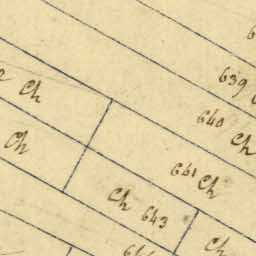 639
Ch
640
Ch
Ch
661
Ch
Ch 643
Ch